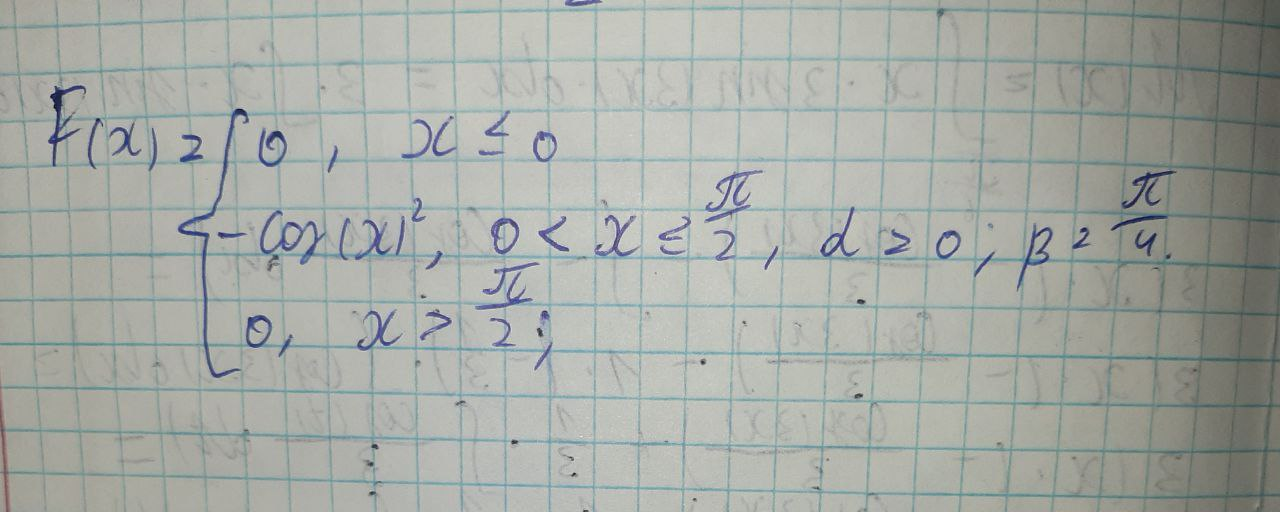 F(x) = { 0, x ≤ 0
- cos(x)², 0 < x ≤ π/2, α = 0; β = π/4.
0, x > π/2;